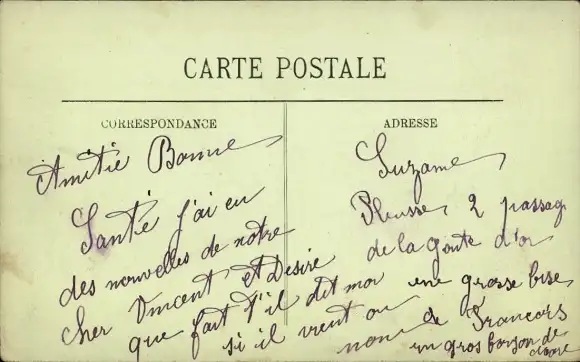 CARTE POSTALE
CORRESPONDANCE
Amitié Bonne
Santé j'ai eu
des nouvelles de notre
cher Vincent et Desire
que fait t'il dit moi
si il vient ou
non
ADRESSE
Suzanne
2 passag
de la goute d'or
une grosse bise
de Francois
un gros